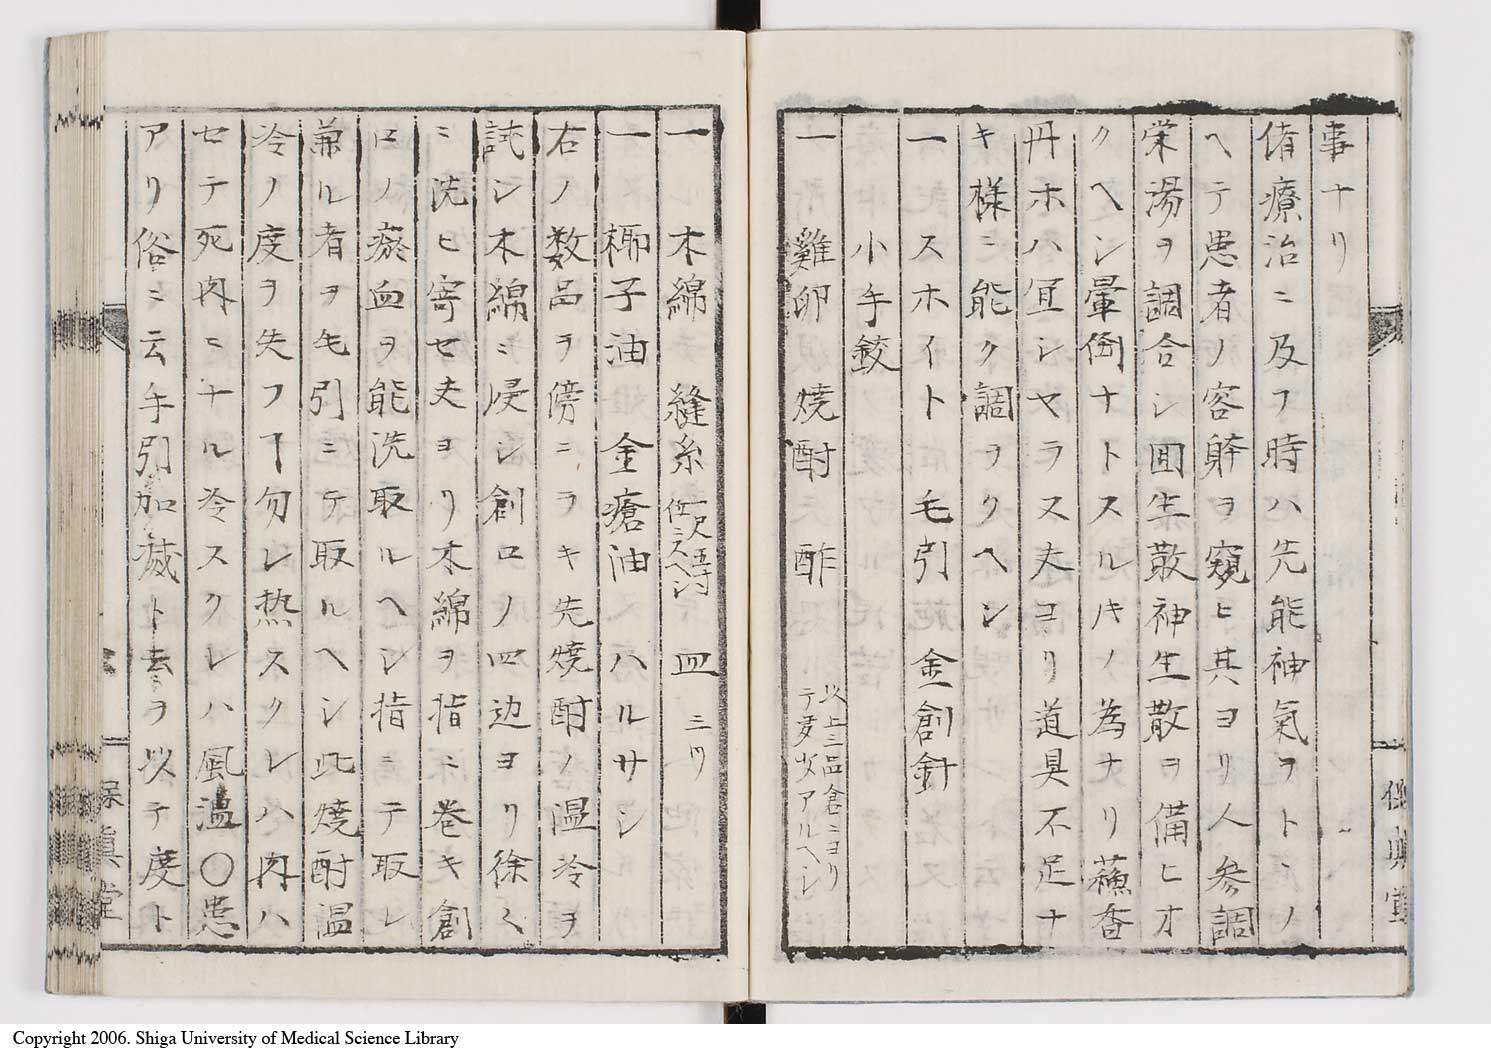 事ナリ
偖療治ニ及フ時ハ先能神氣ヲトヽノ
ヘテ患者ノ容躰ヲ窺ヒ其ヨリ人参調
栄湯ヲ調合シ回生散神生散ヲ備ヒオ
クヘシ暈倒ナトスルキノ為ナリ蘓香
丹ホハ冝シヤラス夫ヨリ道具不足ナ
キ様ニ能ク調ヲクヘシ
一 スホイト 毛引 金創針
小手鉸
一 雞卵 焼酎 酢 以上三品倉ニヨリ
テ多少アルヘシ
一 木綿 縫糸 一尺五寸
位ニスヘシ 皿 三ツ
一 椰子油 金瘡油 ハルサシ
右ノ数品ヲ傍ニヲキ先焼酎ノ温冷ヲ
試シ木綿ニ浸シ創口ノ四辺ヨリ徐々
ニ洗ヒ寄セ夫ヨリ木綿ヲ指ニ巻キ創
口ノ瘀血ヲ能洗取ルヘシ指ニテ取レ
兼ル者ヲ毛引ニテ取ルヘシ此焼酎温
冷ノ度ヲ失フヿ勿レ热スクレハ肉ハ
セテ死肉ニナル冷スクレハ風濕〇患
アリ俗ニ云手引加减ト去ヲ以テ度ト
保真堂
保真堂
Copyright 2006. Shiga University of Medical Science Library